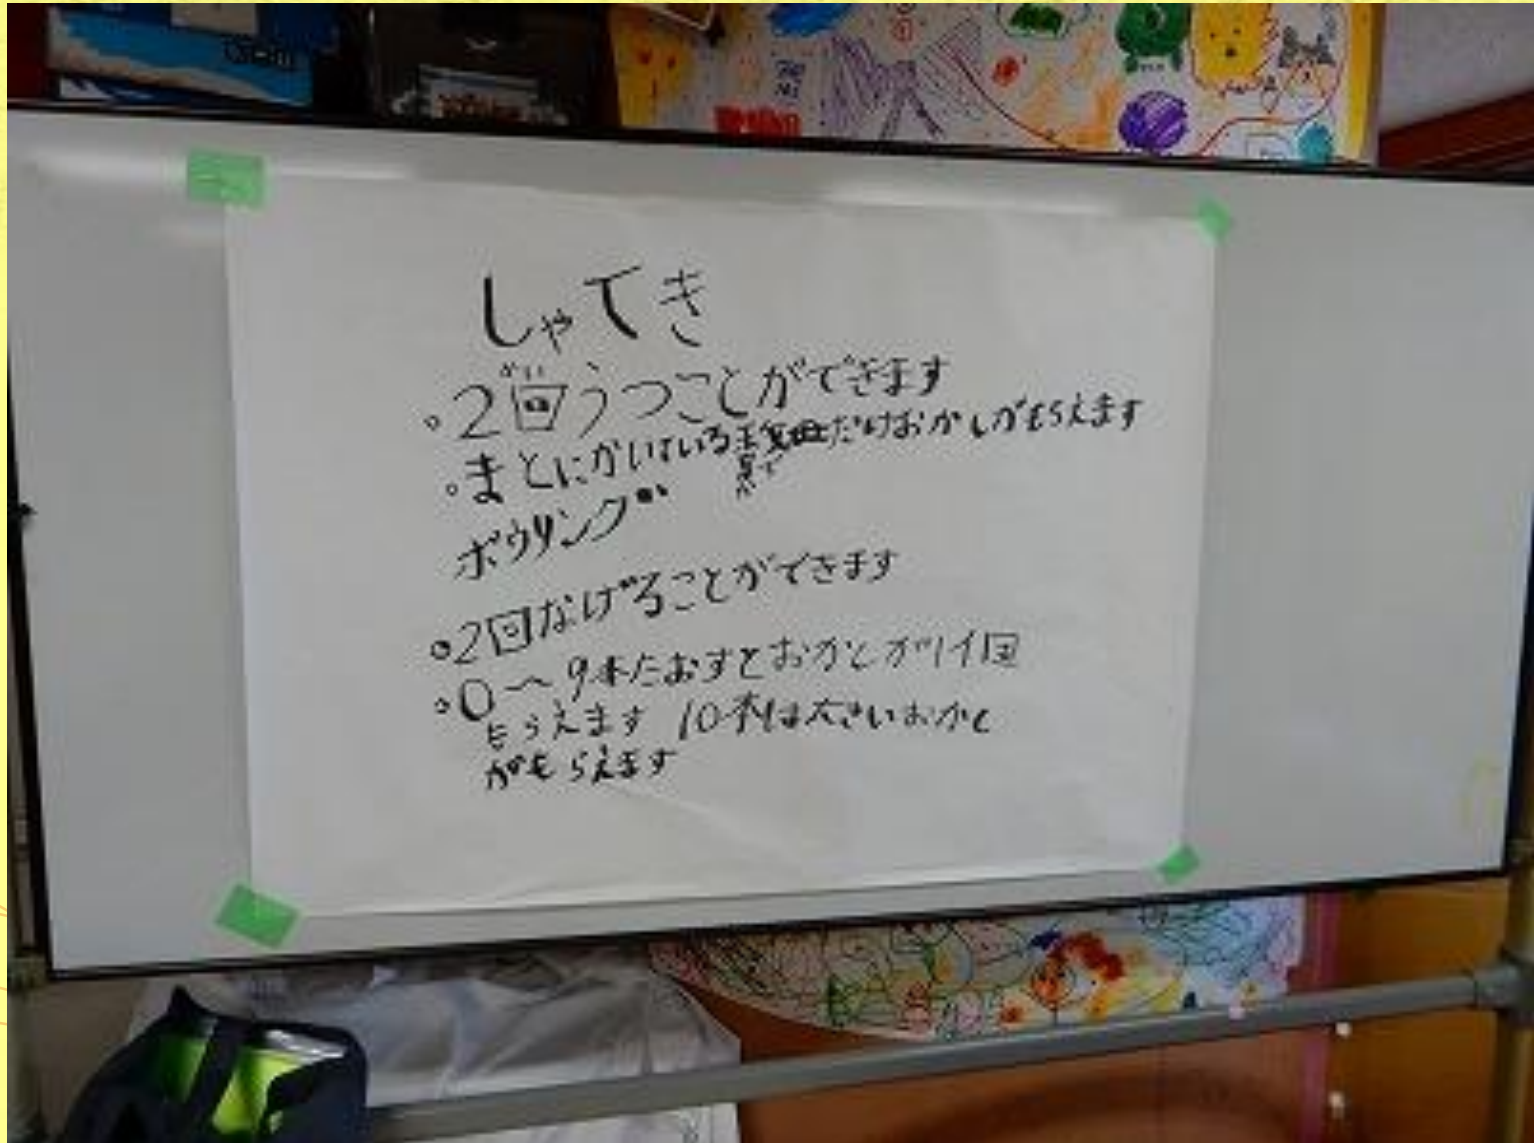 しゃてき
。2回うつことができます
。まとにかいているだけおかしがもらえます
ボウリング
。2回なげることができます
。0〜9本たおすとおかしが1個
もらえます 10本は大きいおかし
がもらえます